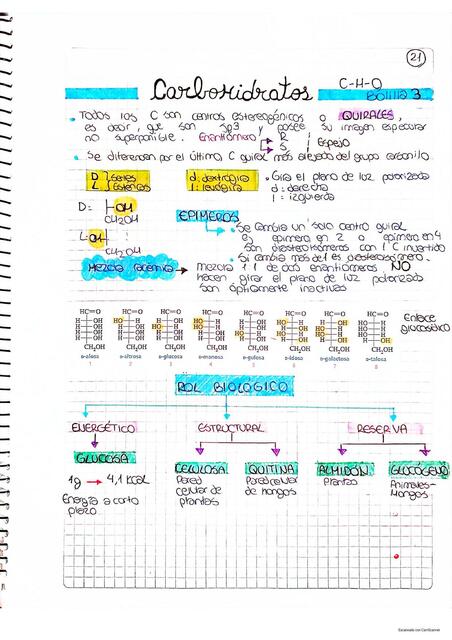 21
Carbohidratos
C-H-O
Bolilla 3
• Todos los C son centros estereogénicos o QUIRALES,
es decir, que son sp3 y posee su imagen especular
no superponible. Enantiómero R
S
Espejo
• Se diferencian por el último C quiral más alejado del grupo carbonilo.
D
L
Series
Estéricas
d: dextrógiro
l: levógiro
• Gira el plano de luz polarizada
d: derecha
l: izquierda
D= OH
CH2OH
L: OH
CH2OH
EPIMEROS
• Se cambia un solo centro quiral
ej epimero en 2 o epimero en 4
son diesteroisómeros con 1 C invertido
Si cambia más de 1 es diesteroisómero.
Mezcla racémica
mezcla 1:1 de dos enantiómeros NO
hacen girar el plano de luz polarizada
son ópticamente inactivas
Enlace
glucosídico
HC=O HC=O HC=O HC=O HC=O HC=O HC=O HC=O
CH2OH CH2OH CH2OH CH2OH CH2OH CH2OH CH2OH CH2OH
D-alosa D-altrosa D-glucosa D-manosa D-gulosa D-idosa D-galactosa D-talosa
1 2 3 4 5 6 7 8
ROL BIOLOGICO
ENERGÉTICO ESTRUCTURAL RESERVA
GLUCOSA
CELULOSA QUITINA ALMIDÓN GLUCÓGENO
1g → 4,1 Kcal
Energía a corto
plazo
Pared
celular de
plantas
Pared celular
de hongos
Plantas
Animales-
Hongos
Escaneado con CamScanner